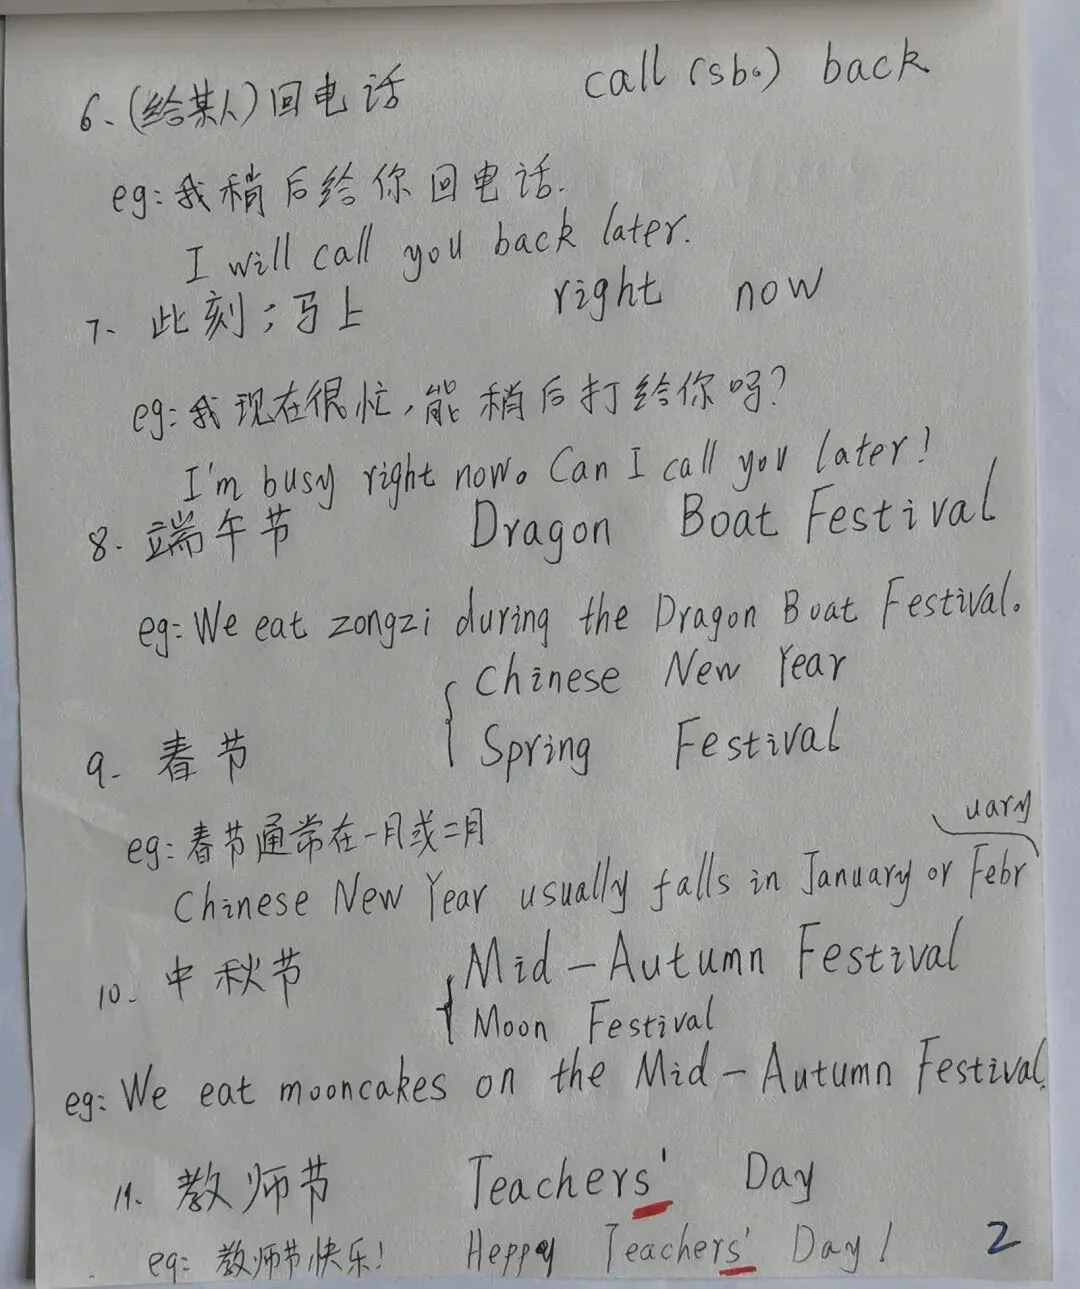 6、(给某人)回电话 call (sb.) back
eg: 我稍后给你回电话.
I will call you back later.
7. 此刻;马上 right now
eg: 我现在很忙,能稍后打给你吗?
I'm busy right now. Can I call you later?
8. 端午节 Dragon Boat Festival
eg: We eat zongzi during the Dragon Boat Festival.
Chinese New Year
9. 春节 Spring Festival
eg: 春节通常在一月或二月
uary
Chinese New Year usually falls in January or Febr
10. 中秋节 Mid-Autumn Festival
Moon Festival
eg: We eat mooncakes on the Mid-Autumn Festival.
11. 教师节 Teachers' Day
eg: 教师节快乐! Heppy Teachers' Day!
2